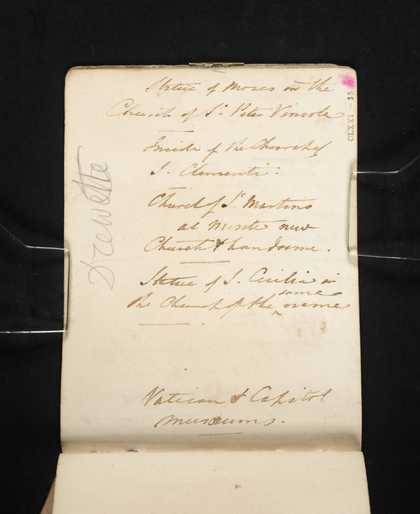 Statue of Moses in the
Church of St. Peter Vincola
Inside of the Church of
S. Clementi:
Church of St. Martins
al Monte new
Church & handsome.
Statue of S. Cecilia in
the Church of the same name
Vatican & Capitol
Museums.
Drewette